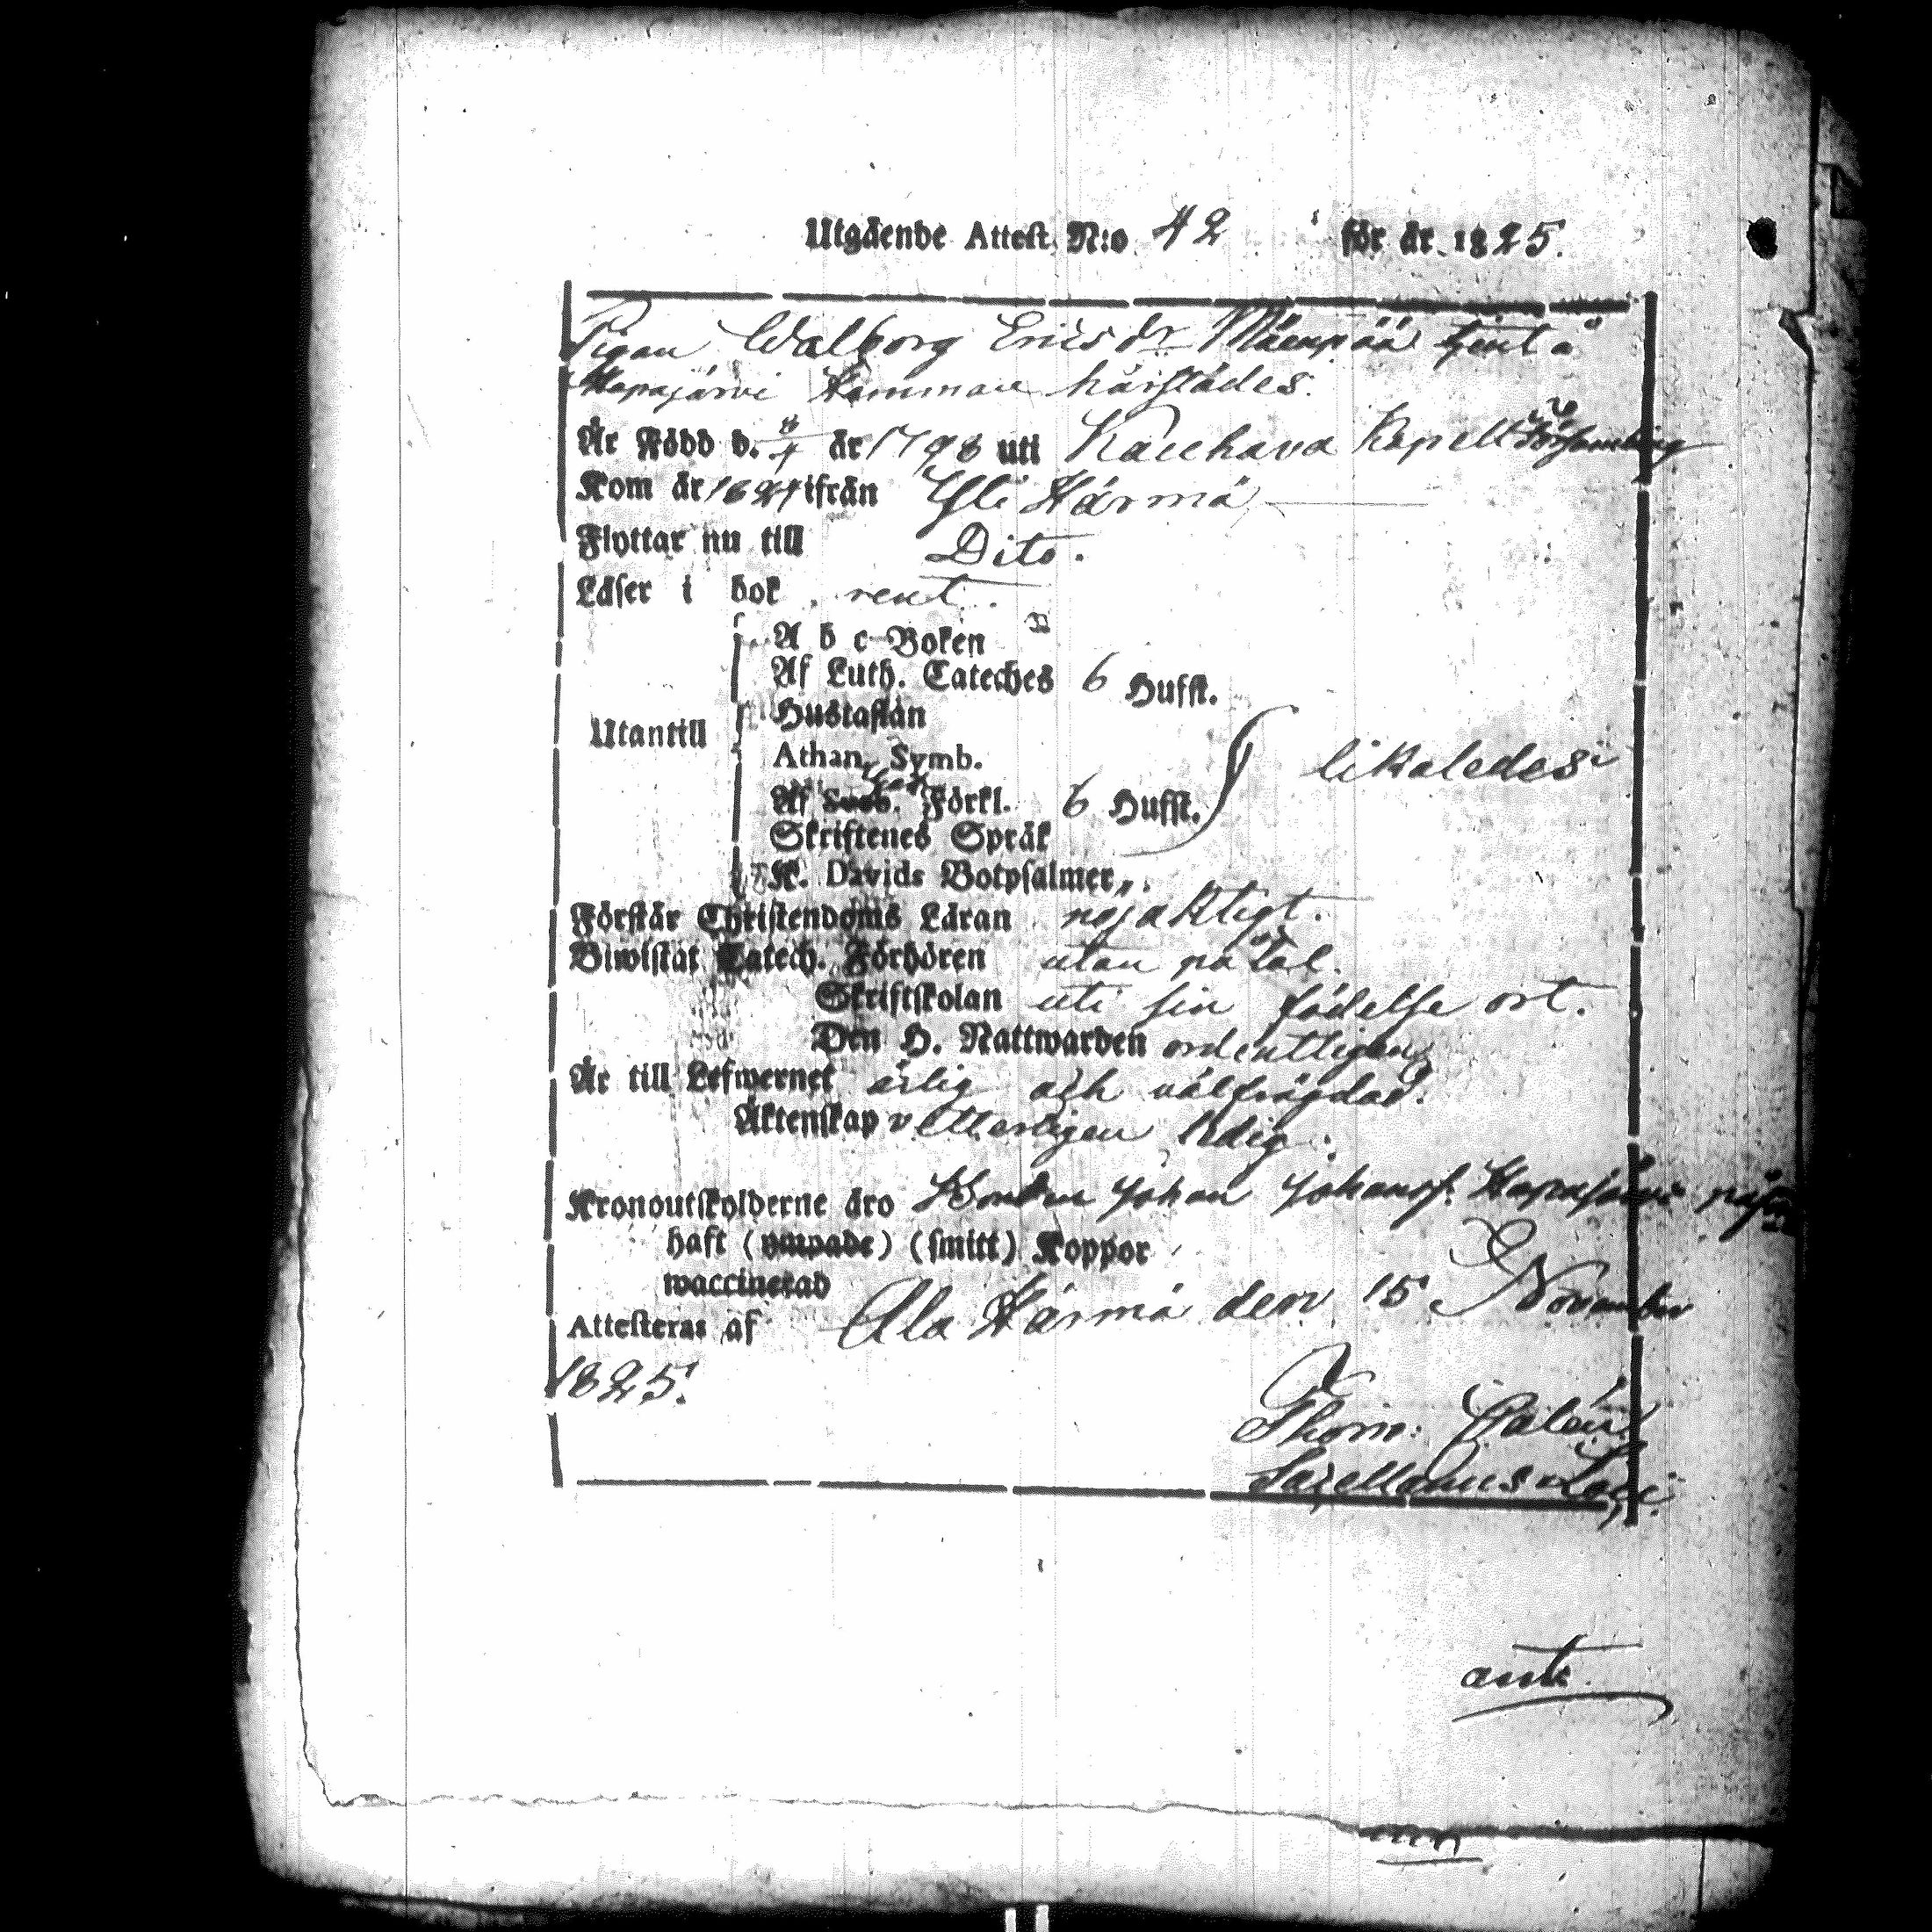 Utgående Attest. N:o 42 för år 1825.
Pigan Walborg Ericsdr Mäenpää tjent å
Hapajärvi Hemman härstädes.
Är Född d. 8/4 år 1798 uti Kauhava Kapell Församling
Kom år 1824 ifrån Yli Härmä
Flyttar nu till Dito.
Läser i bok rent.
A b c-Boken
Af Luth. Cateches 6 Hufst.
Hustaflan
Utantill
Athan. Symb.
likaledes
Af Förkl. 6 Hufst.
Skriftenes Språk
K. Davids Botpsalmer
Förstår Christendoms Läran nojaktigt.
Biwistat Catech. Förhören utan påtal.
Skriftskolan uti sin födelse ort.
Den H. Nattwarden ordentligen
Är till Lefwernet ärlig och välfrägdad.
Äktenskap vetterligen ledig.
Kronoutskylderne äro Bonden Johan Johanss. Hapajärvi
haft (ympade) (smitt) Koppor
waccinerad
Attesteras af Ala Härmä den 15 November
1825.
Thom:
Sacellanus Loci.
ant.